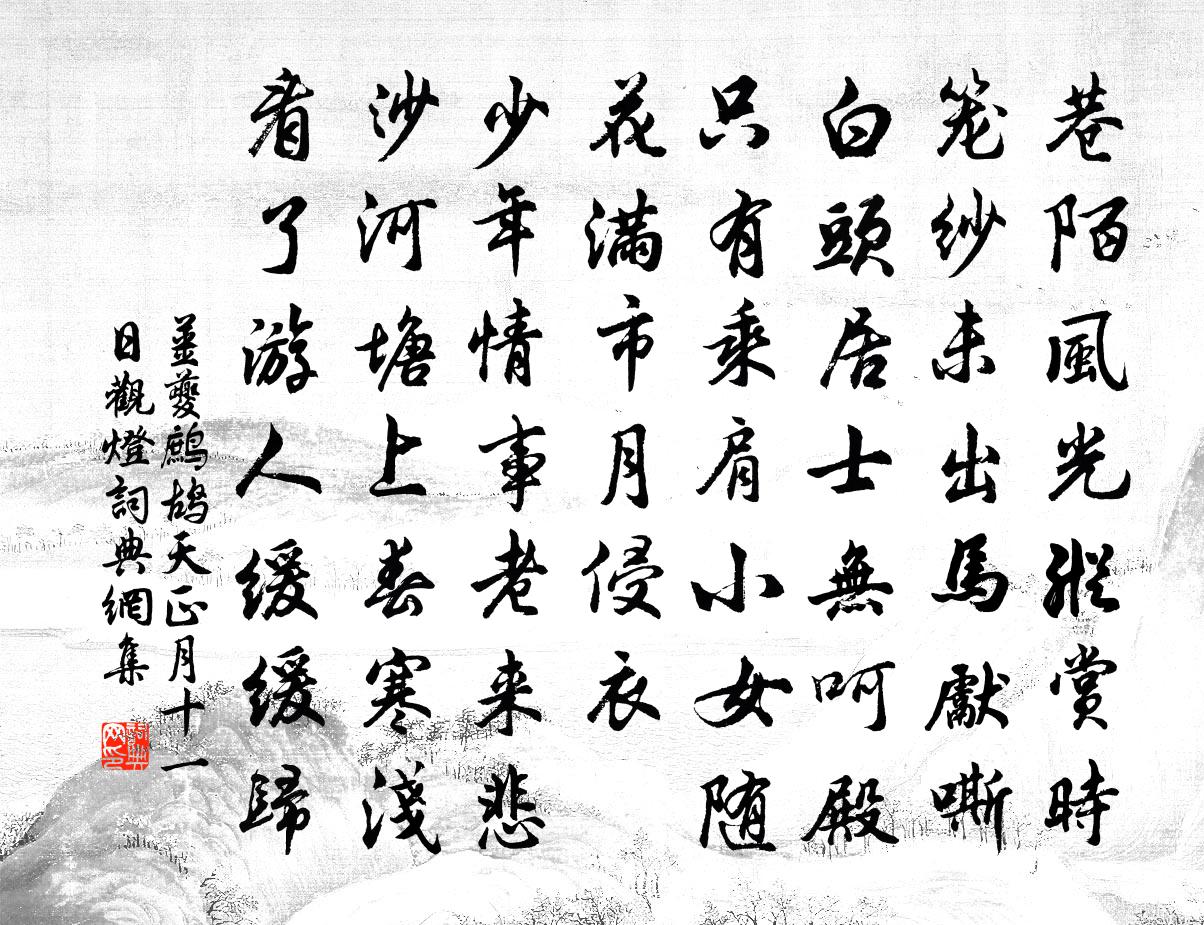 巷陌風光縱賞時
笼紗未出馬獻嘶
白頭居士無呵殿
只有乘肩小女随
花滿市月侵衣
少年情事老来悲
沙河塘上春寒淺
看了游人緩緩歸
姜夔鷓鴣天正月十一
日觀燈詞典網集